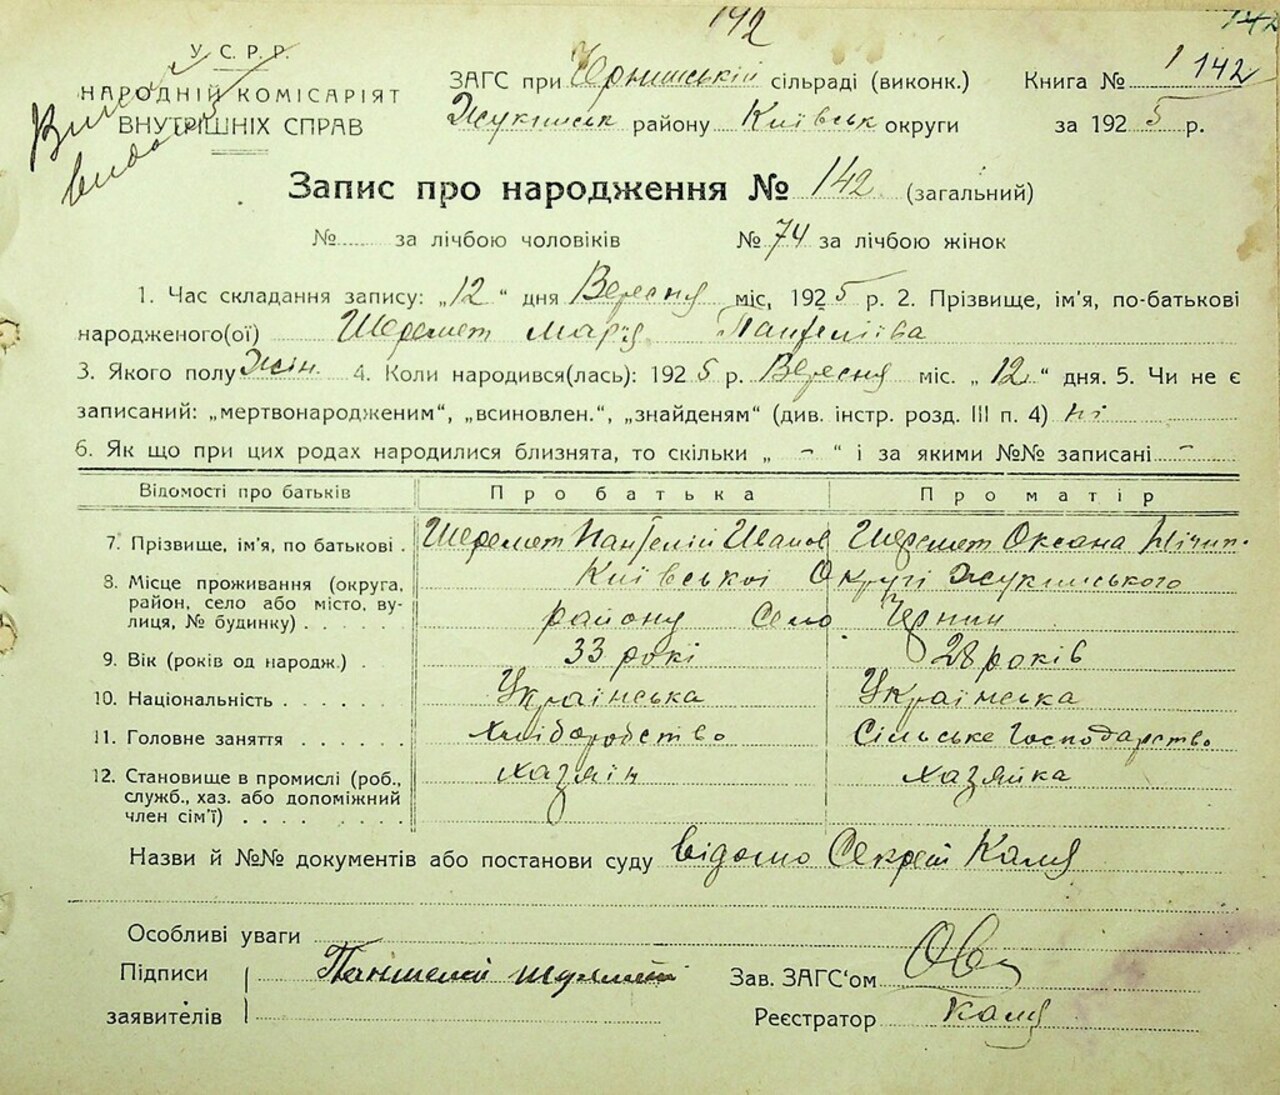 142
142
У. С. Р. Р.
НАРОДНІЙ КОМІСАРІЯТ
ВНУТРІШНІХ СПРАВ
ЗАГС при Чернинській сільраді (виконк.) Книга № 1 142
Жукинськ району Київськ округи за 1925 р.
Запис про народження № 142 (загальний)
№ за лічбою чоловіків № 74 за лічбою жінок
1. Час складання запису: „12“ дня Вересня міс, 1925 р. 2. Прізвище, ім'я, по-батькові
народженого(ої) Шеремет Марія Пантеліїва
3. Якого полу Жін. 4. Коли народився(лась): 1925 р. Вересня міс. „12“ дня. 5. Чи не є
записаний: „мертвонародженим“, „всиновлен.“, „знайденям“ (див. інстр. розд. III п. 4) ні
6. Як що при цих родах народилися близнята, то скільки „ - “ і за якими №№ записані -
Відомості про батьків Про батька Про матір
7. Прізвище, ім'я, по батькові . Шеремет Пантелій Іванов Шеремет Оксана Нічип.
8. Місце проживання (округа, Київської Округі Жукинського
район, село або місто, ву-
лиця, № будинку) . . . . . району Село Чернин
9. Вік (років од народж.) . 33 рокі 28 років
10. Національність . . . . . . Українська Українська
11. Головне заняття . . . . . . Хліборобство Сільське Господарство
12. Становище в промислі (роб., хазяін хазяйка
служб., хаз. або допоміжний
член сім'ї) . . . . . . . .
Назви й №№ документів або постанови суду відомо Секрет Каля
Особливі уваги
Підписи Пантелей Шеремет Зав. ЗАГС‘ом
заявителів Реєстратор Каля